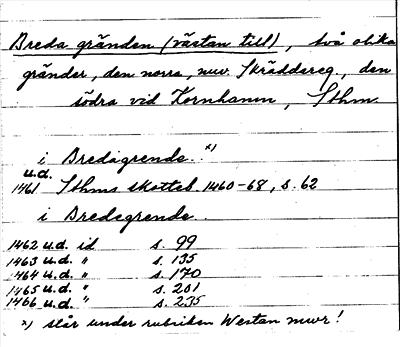 Breda gränden (västan till), två olika
gränder, den norra, nuv. Skräddareg., den
södra vid Kornhamn, Sthm.
i Bredagrende. x)
u.d.
1461 Sthms skotteb. 1460-68, s. 62
i Bredegrende
1462 u.d. id s. 99
1463 u.d. " s. 135
1464 u.d. " s. 170
1465 u.d. " s. 201
1466 u.d. " s. 235
x) står under rubriken Westan mwr!